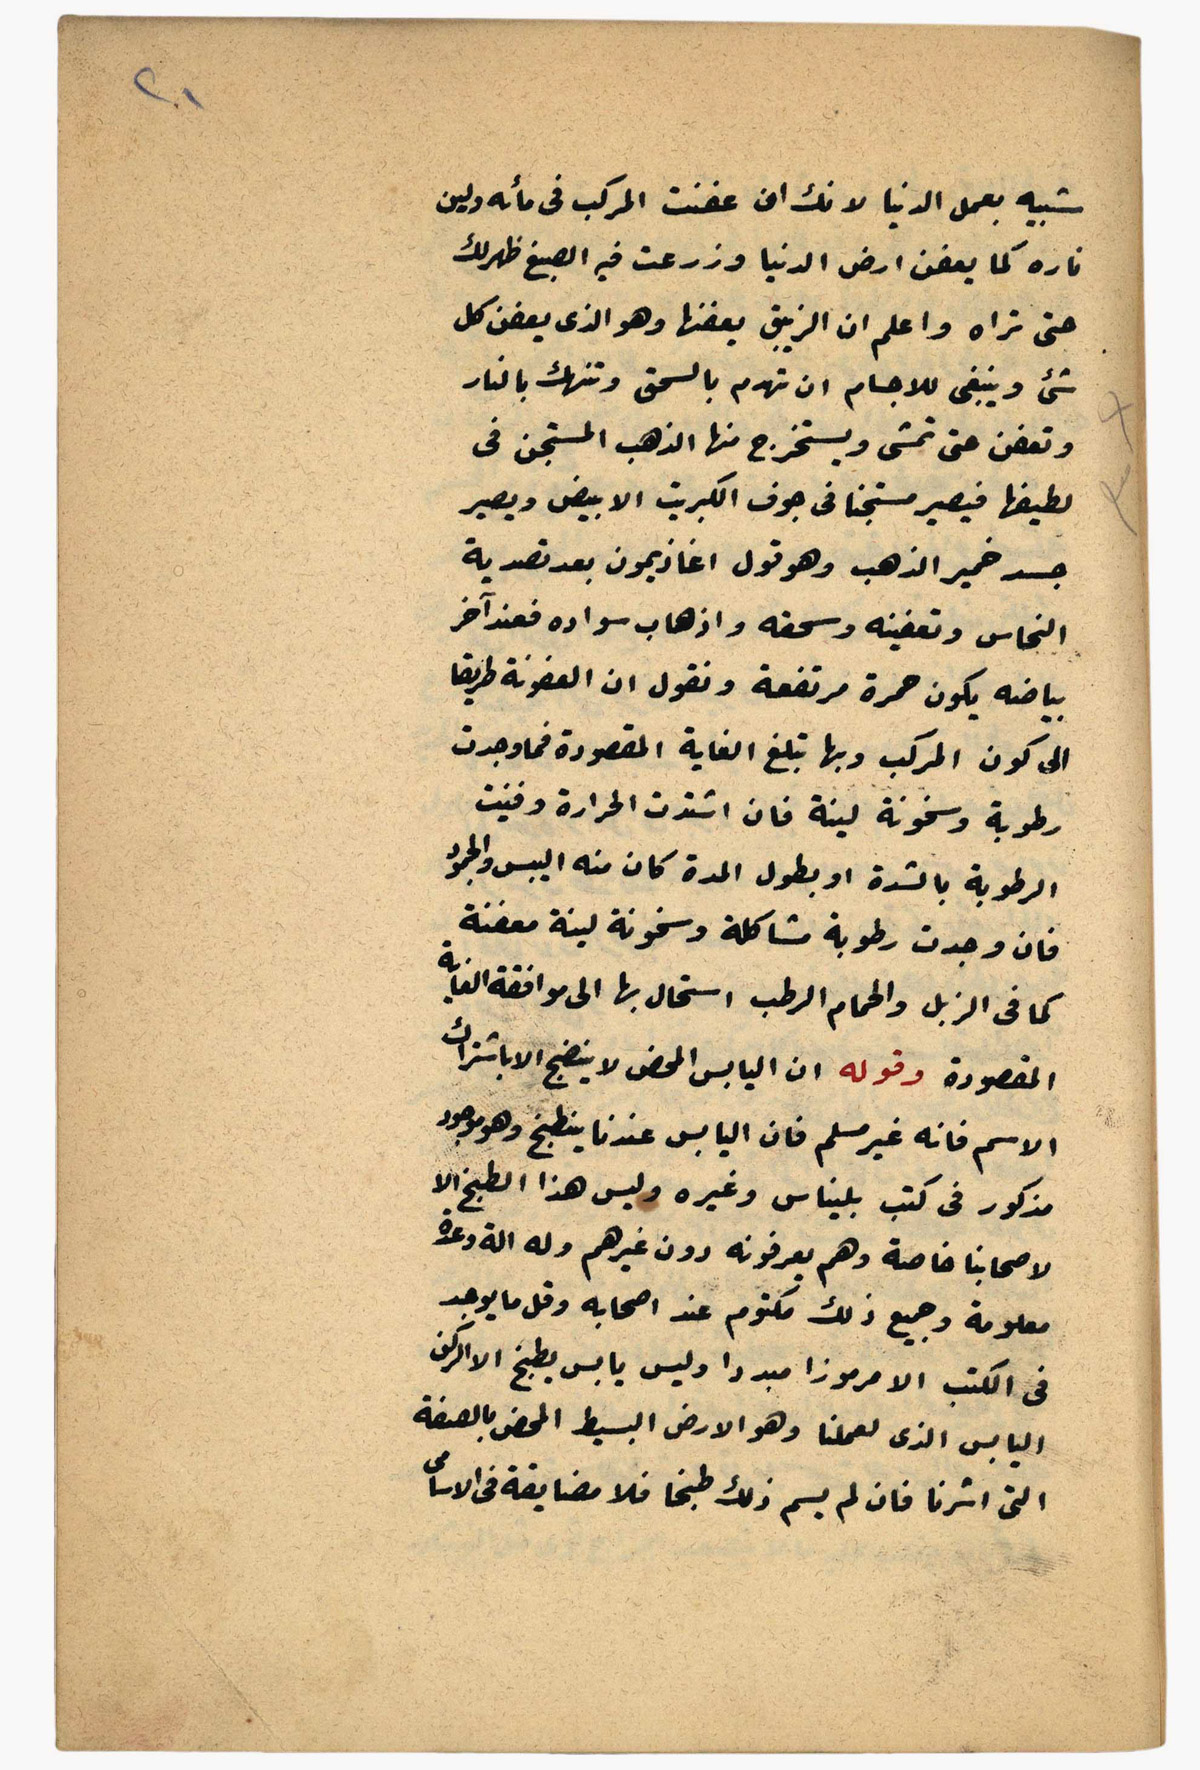 ٢٠١
شبيه بعمل الدنيا لانك ان عفنت المركب فى مأنه ولين
ناره كما يعفن ارض الدنيا وزرعت فيه الصبغ ظهر لك
حتى تراه واعلم ان الزيبق يعفنها وهو الذى يعفن كل
شئ وينبغى للاجسام ان تهدم بالسحق وتنهك بالنار
وتعفن حتى تمشى ويستخرج منها الذهب المستجن فى
لطيفها فيصير مستجنا فى جوف الكبريت الابيض ويصير
جسد خمير الذهب وهو قول اغاذيمون بعد تصدية
النحاس وتعفينه وسحقه واذهاب سواده فعند آخر
بياضه يكون حمرة مرتفعة ونقول ان العفونة طريقا
الى كون المركب وبها تبلغ الغاية المقصودة فما وجدت
رطوبة وسخونة لينة فان اشتدت الحرارة وفنيت
الرطوبة بالشدة او بطول المدة كان منه اليبس والجمود
فان وجدت رطوبة مشاكلة وسخونة لينة معفنة
كما فى الزبل والحمام الرطب استحال بها الى موافقة الغاية
المقصودة وقوله ان اليابس المحض لا ينضج الا باشتراك
الاسم فانه غير مسلم فان اليابس عندنا ينطبخ وهو موجود
مذكور فى كتب بليناس وغيره وليس هذا الطبخ الا
لاصحابنا خاصة وهم يعرفونه دون غيرهم وله الة وعدة
معلومة وجميع ذلك مكتوم عند اصحابه وقل ما يوجد
فى الكتب الا مرموزا مبددا وليس يابس يطبخ الا الركن
اليابس الذى لعملنا وهو الارض البسيط المحض بالصفة
التى اشرنا فان لم يسم ذلك طبخا فلا مضايقة فى الاسامى